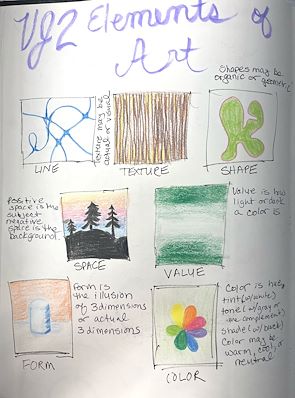 VJ2 Elements of
Art
Shapes may be
organic or geometric
Texture may be
actual or visual
LINE
TEXTURE
SHAPE
Positive
space is the
subject
negative
space is the
background.
Value is how
light or dark
a color is
SPACE
VALUE
Form is
the illusion
of 3 dimensions
or actual
3 dimensions
Color is hue,
tint (w/white)
tone (w/gray or
complement)
shade (w/black)
Color may be
warm, cool, or
neutral
FORM
COLOR